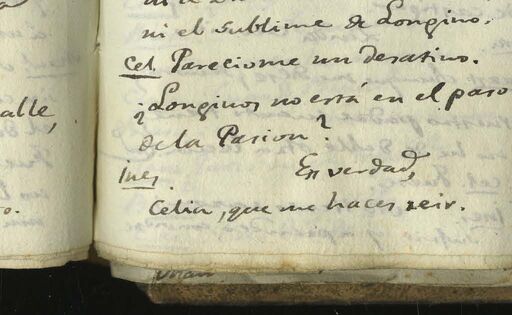 ni el sublime de Longino.
Cel. Pareciome un desatino.
¿Longinos no está en el paso
de la Pasion?
Ines. En verdad,
Celia, que me haces reir.
alle,
o.